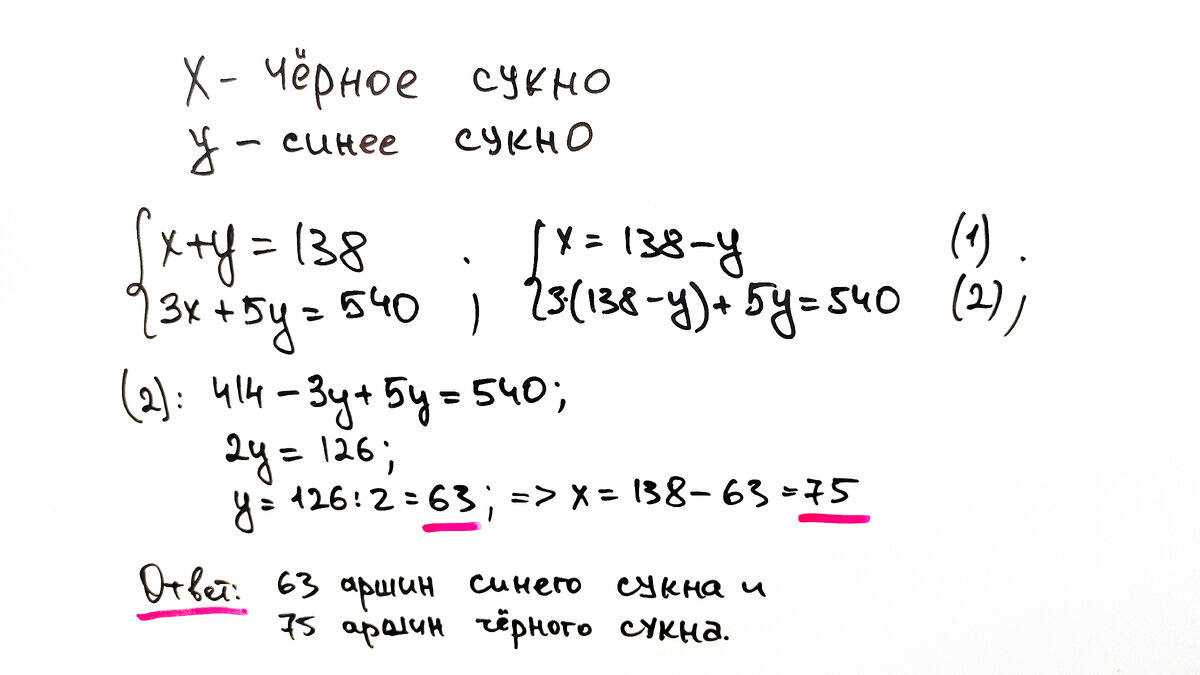 x – чёрное сукно
y – синее сукно
{ x+y = 138 ; { x = 138 – y (1) ;
3x + 5y = 540 3·(138 – y) + 5y = 540 (2)
(2): 414 – 3y + 5y = 540;
2y = 126;
y = 126 : 2 = 63; => x = 138 – 63 = 75
Ответ: 63 аршин синего сукна и
75 аршин чёрного сукна.